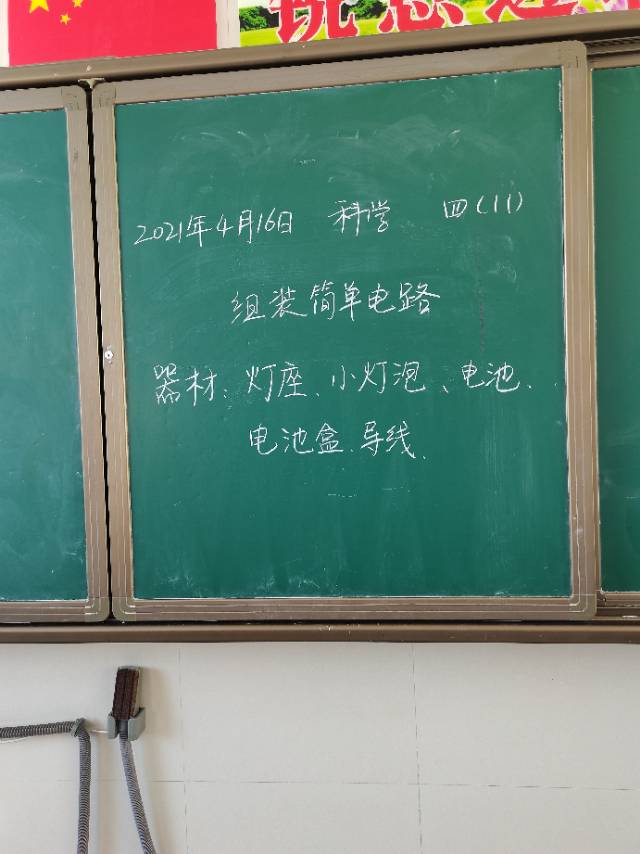 2021年4月16日 科学 四(11)
组装简单电路
器材:灯座、小灯泡、电池、
电池盒、导线、